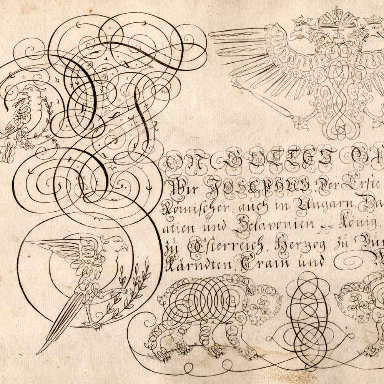 VON GOTTES G
Wir JOSEPHUS Der Erste
Römischer auch in Ungarn Da
atien und Sclavonien König
zu Österreich Herzog zu Bur
Kärndten Crain und